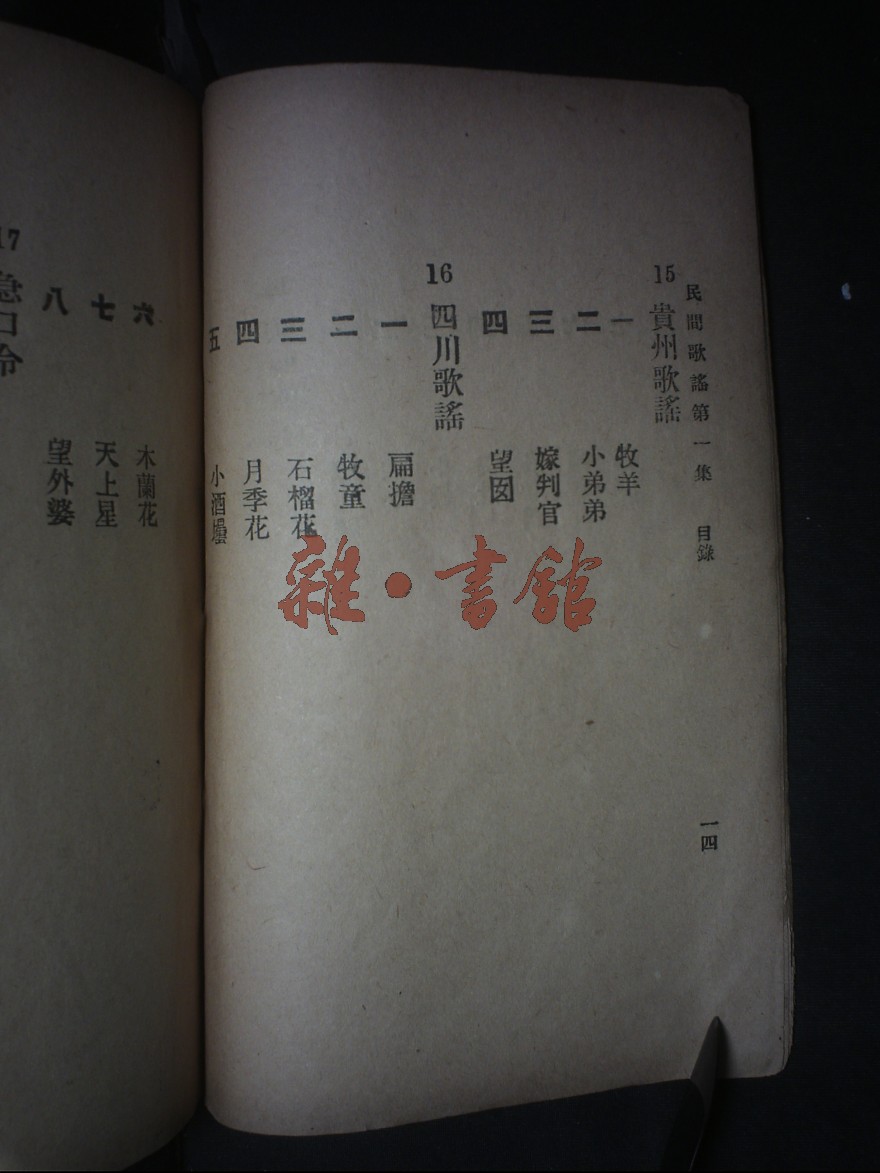 民間歌謠第一集 目錄
一四
15 貴州歌謠
一 牧羊
二 小弟弟
三 嫁判官
四 望囡
16 四川歌謠
一 扁擔
二 牧童
三 石榴花
四 月季花
五 小酒壜
六 木蘭花
七 天上星
八 望外婆
17 急口令
雜·書館